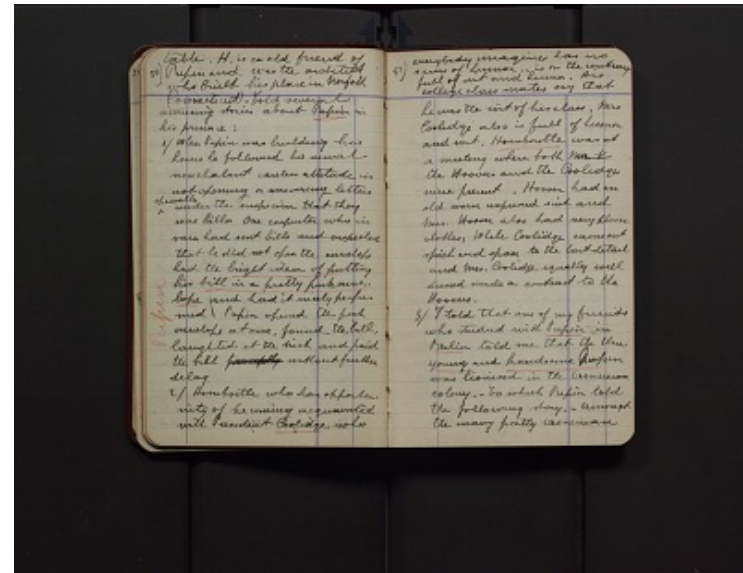 50) table. H. is an old friend of
Pupin and was the architect
who built his place in Norfolk
(Connecticut). Told several
amusing stories about Pupin in
his presence:
1/ When Pupin was building his
house he followed his usual
nonchalant careless attitude in
not opening or answering letters
especially under the suspicion that they
were bills. One carpenter who in
vain had sent bills and suspected
that he did not open the envelops
had the bright idea of putting
his bill in a pretty pink enve-
lope and had it nicely perfu-
med! Pupin opened the pink
envelope at once, found the bill,
laughed at the trick and paid
the bill promptly without further
delay
Pupin
2/ Hornbostle who has opportu-
nity of becoming acquainted
with President Coolidge who
51) everybody imagines has no
sense of humor, is on the contrary
full of wit and humor. His
college class mates say that
he was the wit of his class. Mrs
Coolidge also is full of humor
and wit. Hornbostle was at
a meeting where both
the Hoovers and the Coolidge
were present. Hoover had an
old worn unpressed suit and
Mrs. Hoover also had very plain
clothes, while Coolidge came out
spick and span to the last detail
and Mrs. Coolidge equally well
dressed made a contrast to the
Hoovers.
3/ I told that one of my friends
who studied with Pupin in
Berlin told me that the then
young and handsome Pupin
was lionised in the American
colony. - To which Pupin told
the following story. - Amongst
the many pretty American